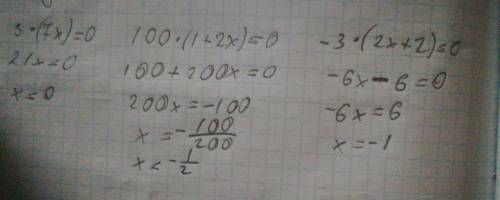 3·(7x)=0
21x=0
x=0
100·(1+2x)=0
100+200x=0
200x=-100
x=-100/200
x=-1/2
-3·(2x+2)=0
-6x-6=0
-6x=6
x=-1